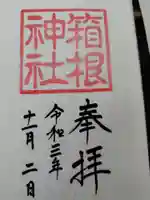 奉拝
箱根
神社
令和三年
十一月二日